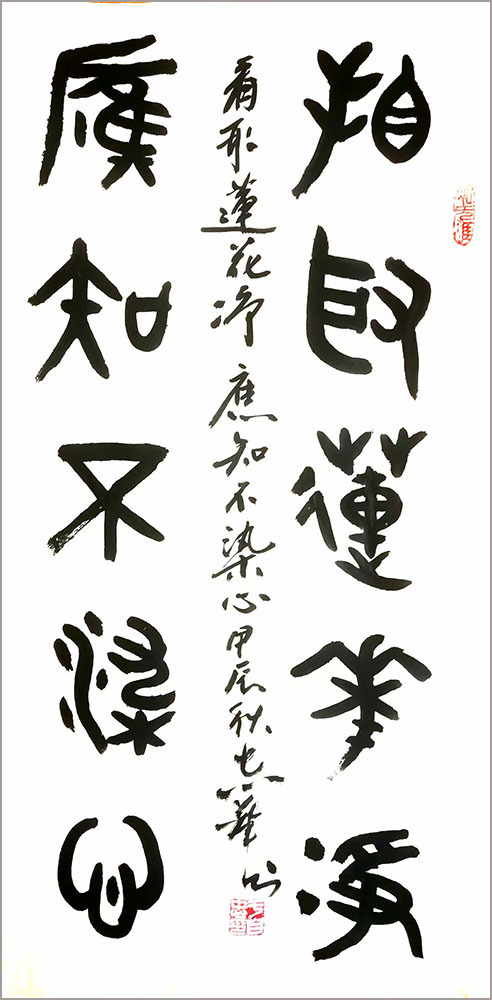 看取蓮華淨
看取蓮花净應知不染心甲辰秋
應知不染心